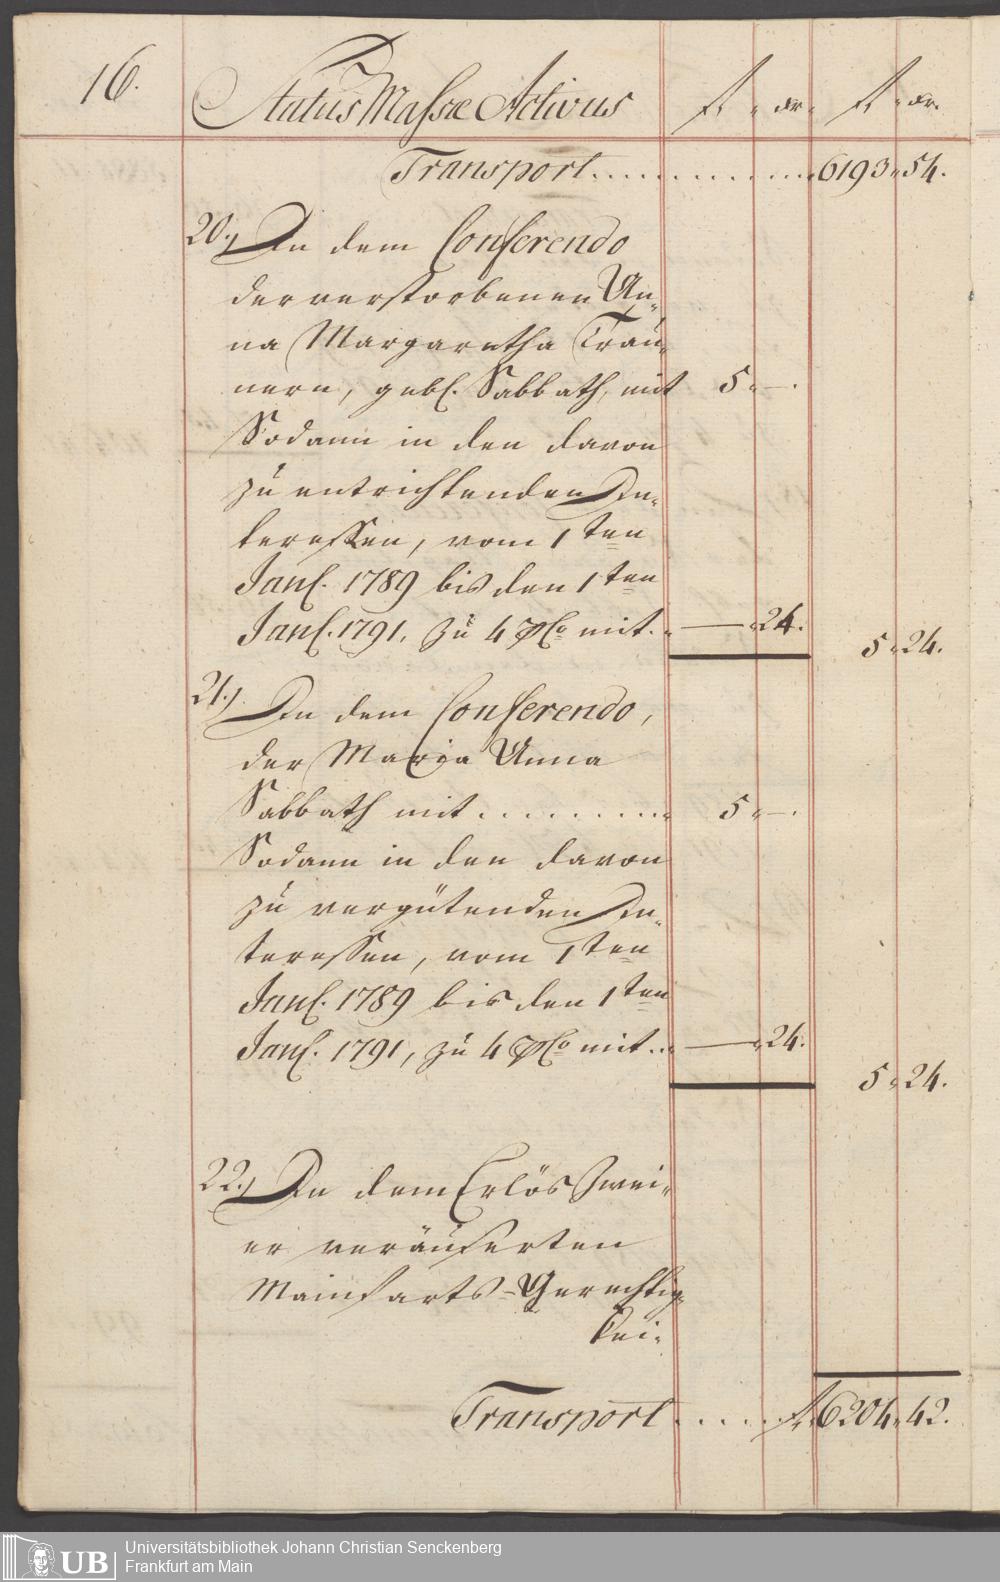 16. Status Massæ Activus fl " xr. fl " xr.
Transport . . . . . . . . . . . 6193 " 54.
20.) In dem Conferendo
der verstorbenen An-
na Margaretha Träu-
nern, gebl. Sabbath, mit 5 " — .
Sodann in den davon
zu entrichtenden In-
teressen, vom 1ten
Janl. 1789 bis den 1ten
Janl. 1791, zu 4 pCo mit. " —— " 24.
5 " 24.
21.) In dem Conferendo,
der Maria Anna
Sabbath mit . . . . . . . . . 5 " — .
Sodann in den davon
zu vergütenden In-
teressen, vom 1ten
Janl. 1789 bis den 1ten
Janl. 1791, zu 4 pCo mit . . —— " 24.
5 " 24.
22.) In dem Erlös zwei-
er veräuserten
Mainfarts-Gerechtig-
kei-
Transport . . . . . fl. 6204 " 42.
UB
Universitätsbibliothek Johann Christian Senckenberg
Frankfurt am Main